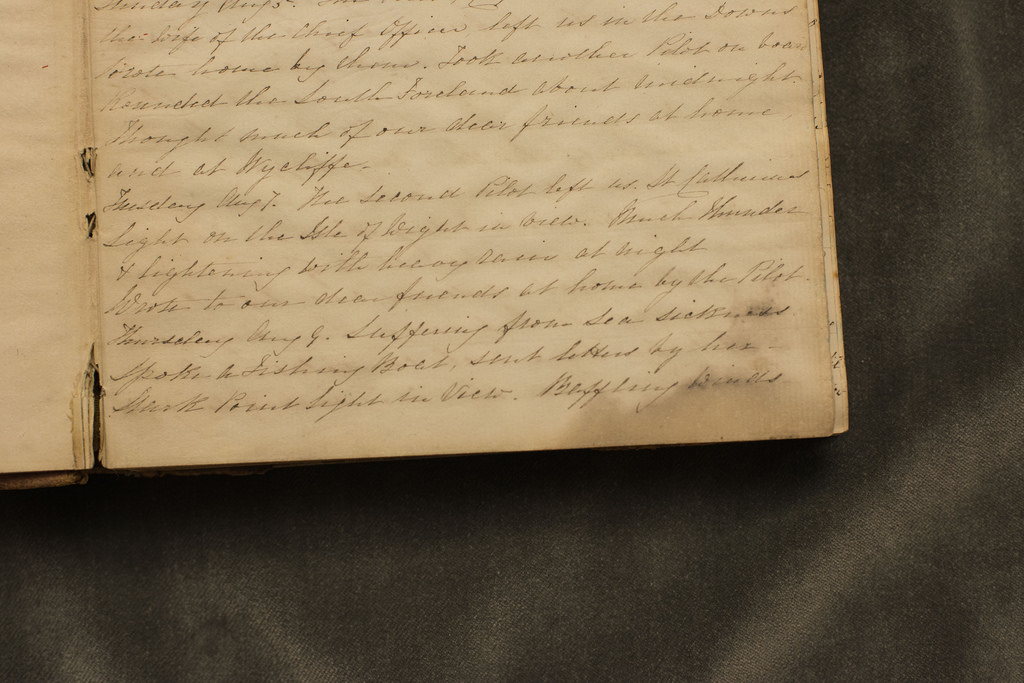 Sunday Aug 5. The
the wife of the Chief Officer, left us in the Downs
wrote home by them. Took another Pilot on board
Rounded the South Foreland about midnight.
Thought much of our dear friends at home,
and at Wycliffe.
Tuesday Aug 7. The second Pilot left us. St Catherines
Light on the Isle of Wight in view. Much Thunder
& lightening with heavy rain at night
Wrote to our dear friends at home by the Pilot.
Thursday Aug 9. Suffering from sea sickness
spoke a Fishing Boat, sent letters by her -
Start Point light in View. Baffling winds